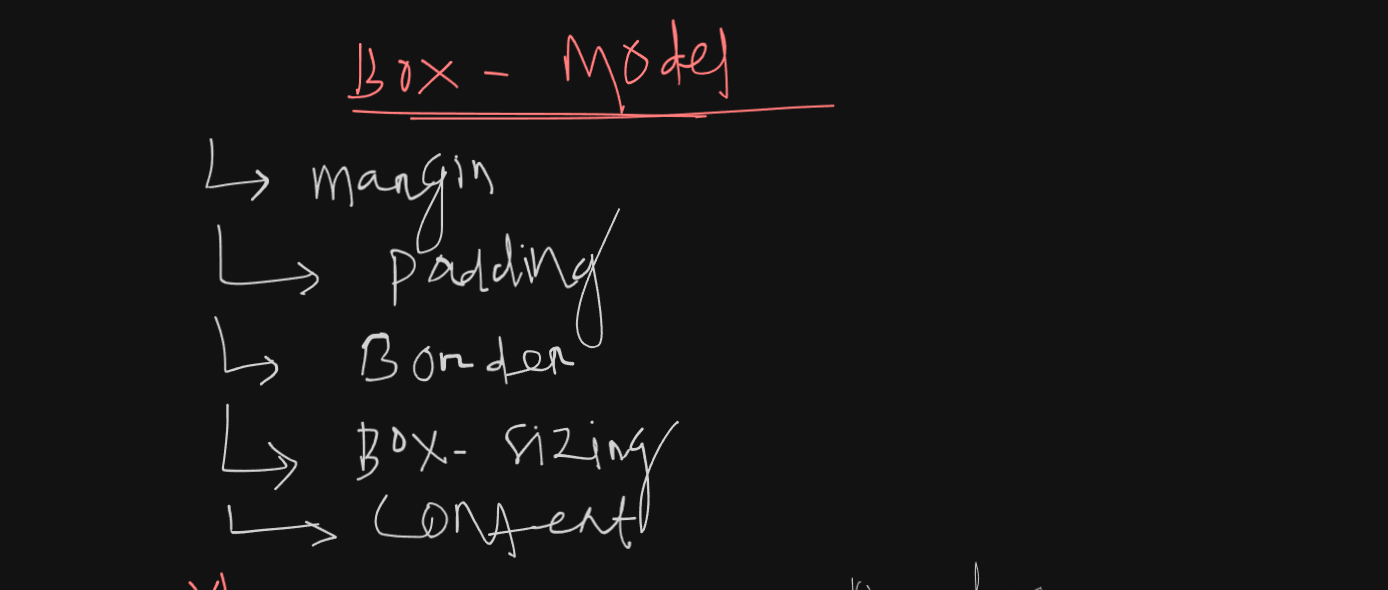 Box - Model
margin
Padding
Border
Box - sizing
Content